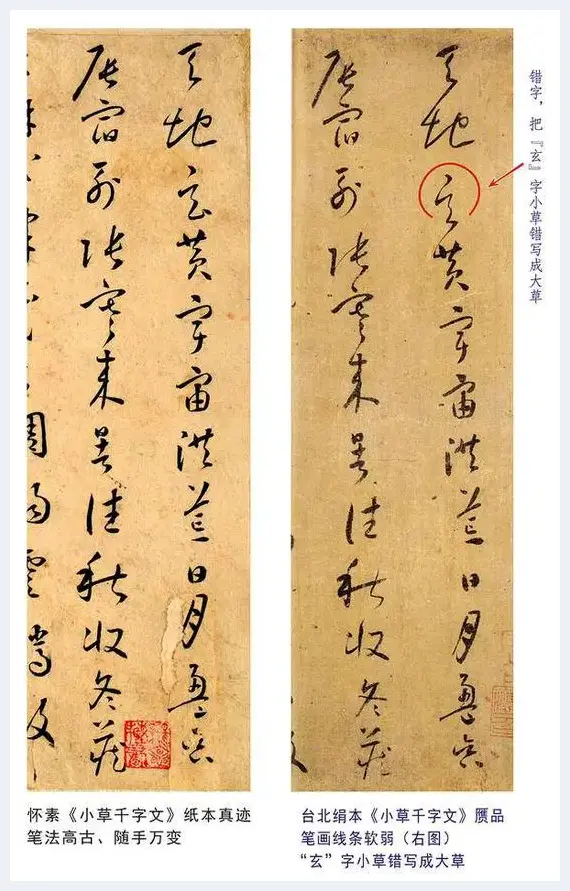 天地玄黃宇宙洪荒日月盈昃
辰宿列張寒來暑往秋收冬藏
雲騰致
天地玄黃宇宙洪荒日月盈昃
辰宿列張寒來暑往秋收冬藏
错字，把『玄』字小草错写成大草
怀素《小草千字文》纸本真迹
笔法高古、随手万变
台北绢本《小草千字文》赝品
笔画线条软弱（右图）
“玄”字小草错写成大草